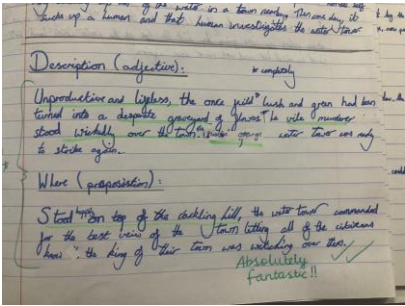 of the water in a town nearby. Then one day, it
sucks up a human and that human investigates the water tower
Description (adjective):
* completely
Unproductive and lifeless, the once * lush and green had been
turned into a desperate graveyard of The vile murderer
stood wickedly over the town. water tower was ready
to strike again.
Where (preposistion):
Stood on top of the cackling hill, the water tower commanded
for the best view of the town letting all of the citizens
know "the king of their town was watching over them.
Absolutely
fantastic!!